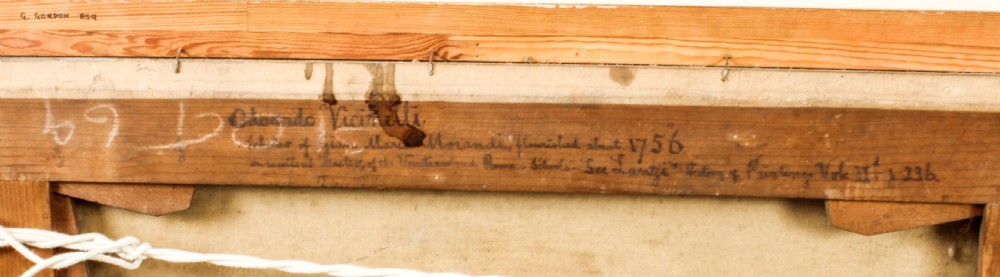 G. GORDON ESQ
Odoardo Vicinelli.
of Gian Maria Morandi, flourished about 1756
an excellent Master of the Venetian and Roman Schools - See Lanzi's History of Painting Vol. IId p 236.